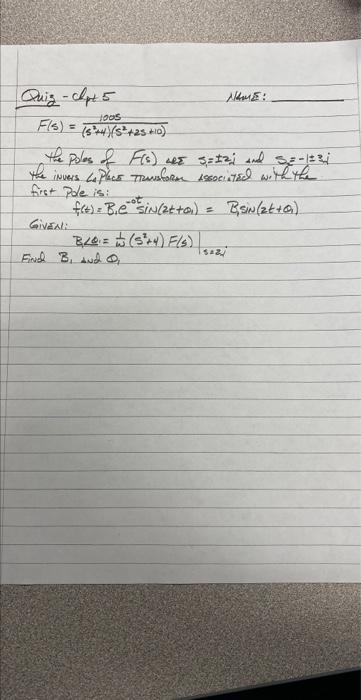 Quiz - chpt 5 NAME: ________
F(s) = 100s / (s²+4)(s²+2s+10)
the Poles of F(s) are s₁=±2j and s₂=-1±3j
the invers LaPlace Transform associated with the
first Pole is:
f(t) = B₁e^-0t sin(2t+Θ₁) = B₁sin(2t+Θ₁)
GIVEN:
B₁∠Θ₁ = 1/ω (s²+4) F(s) |s=2j
Find B₁ and Θ₁